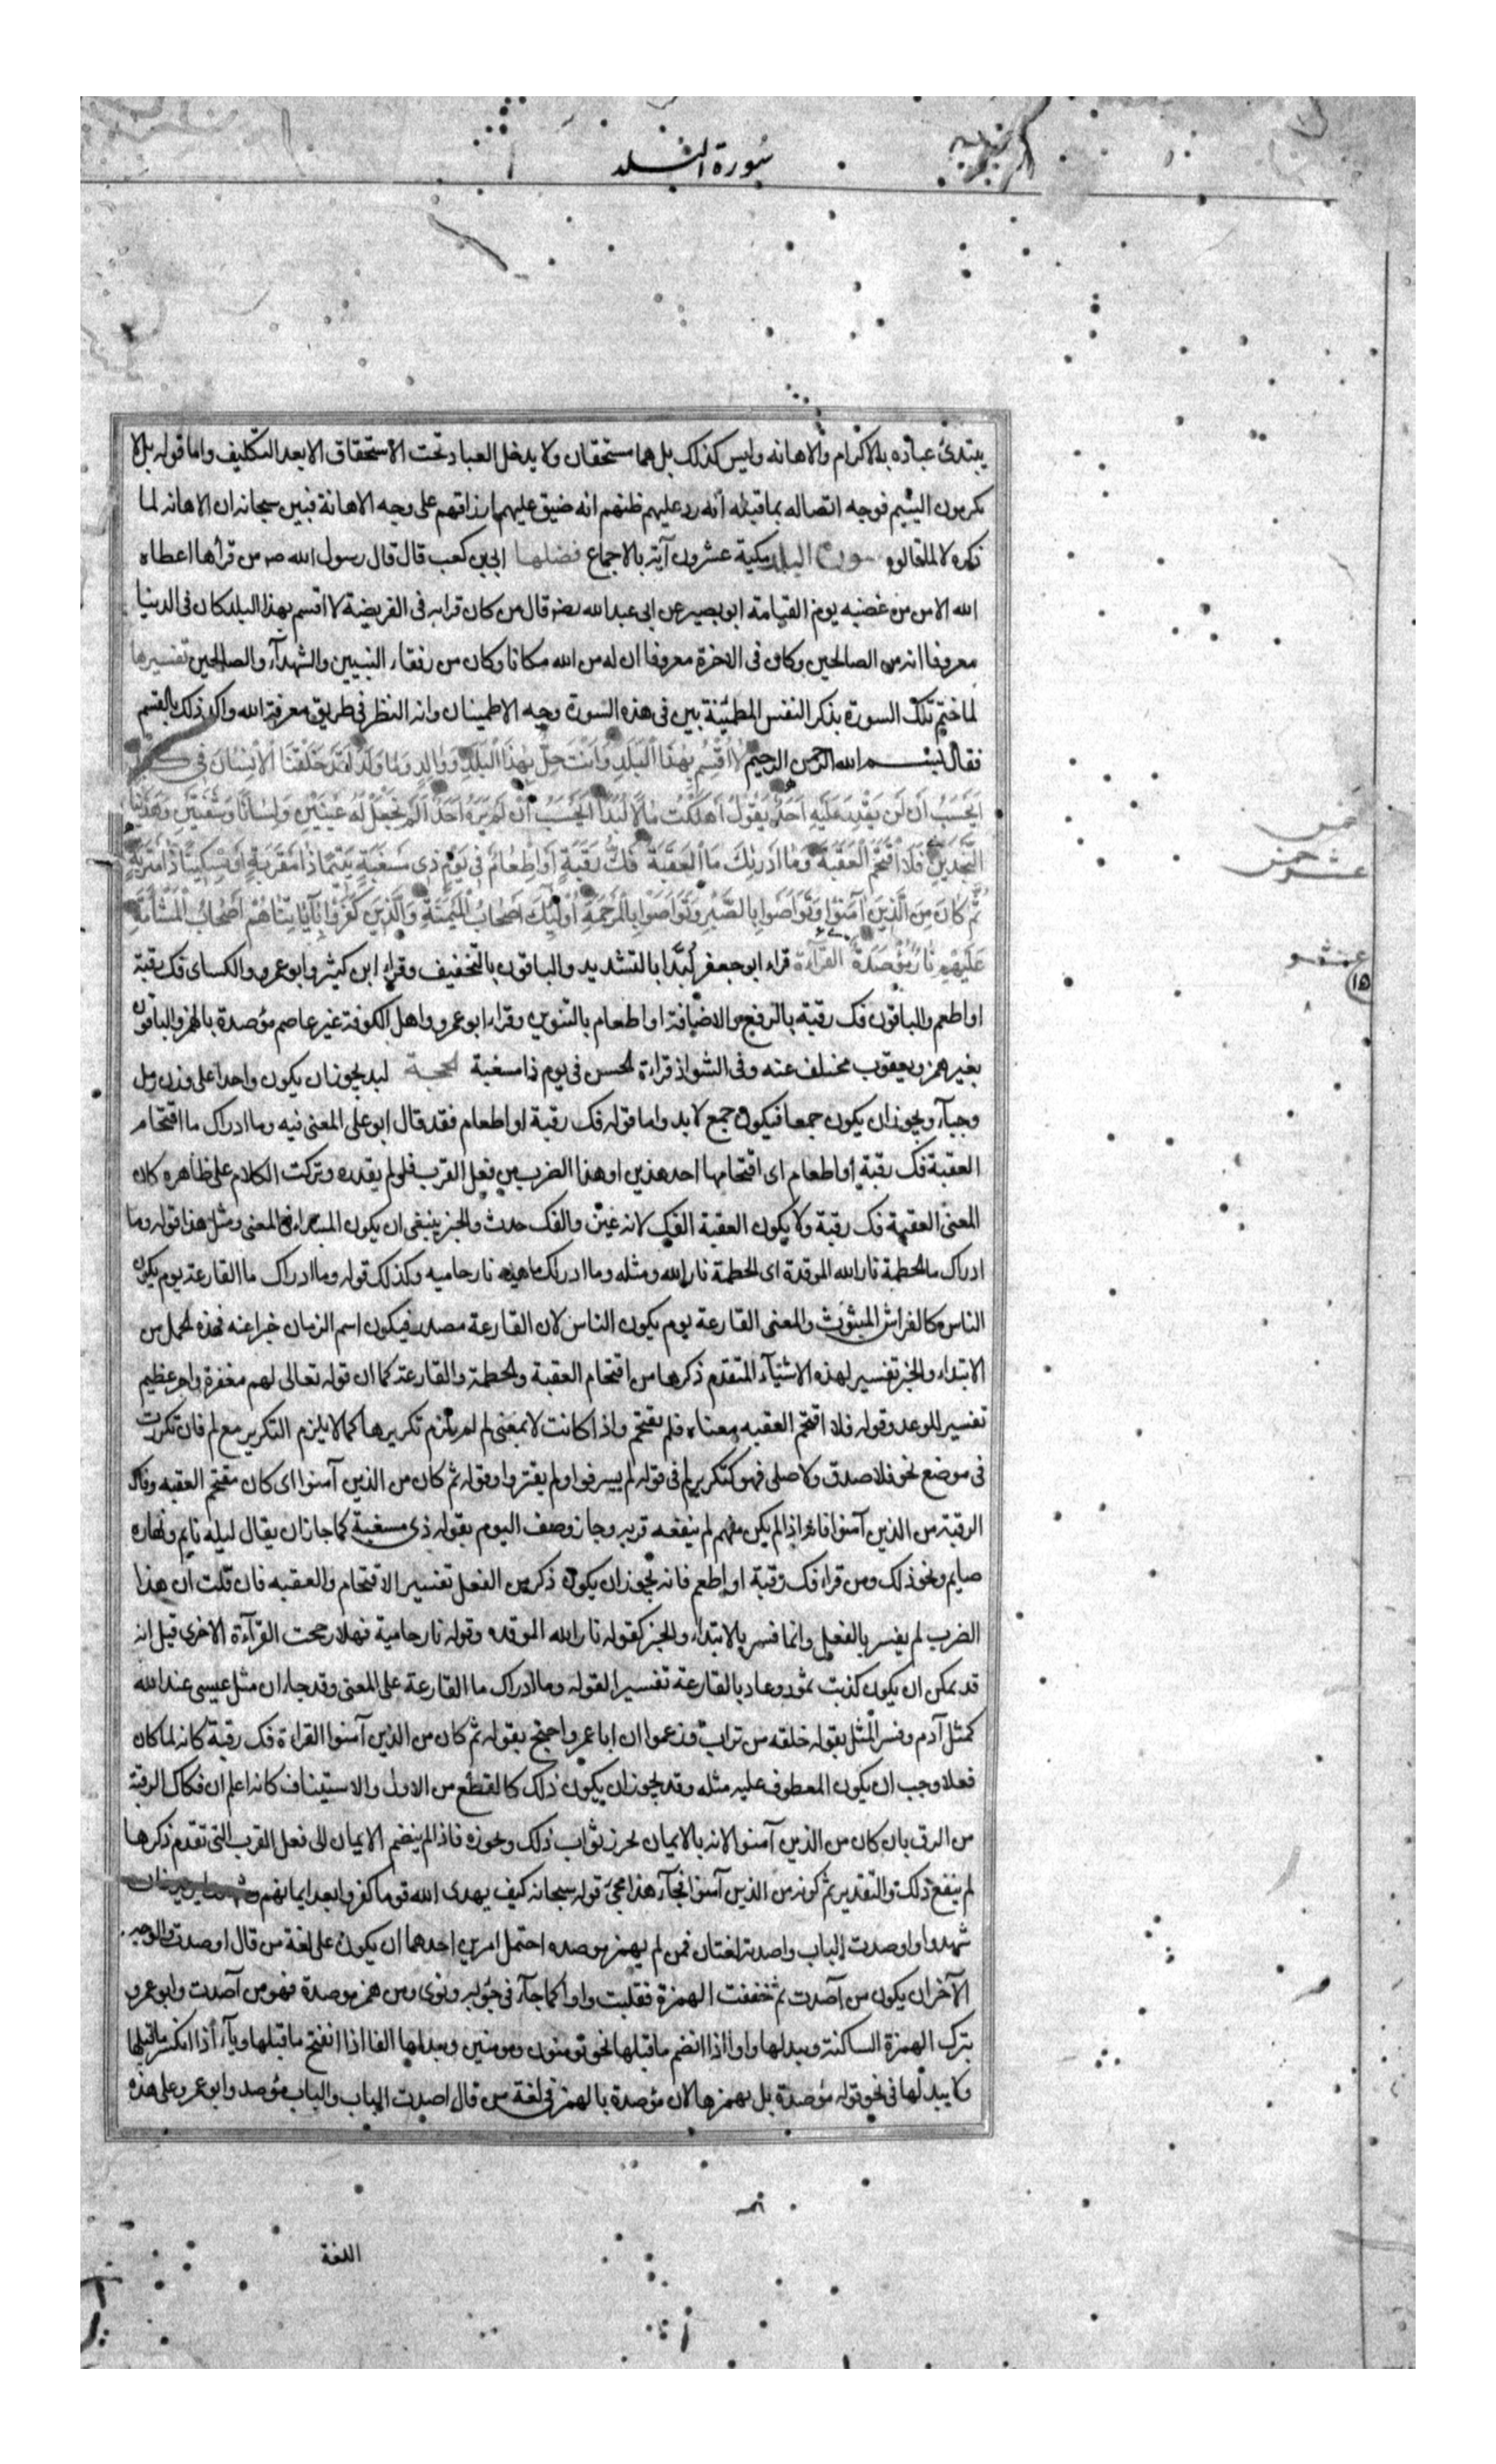 سورة البلد
يبتدئ عباده بالاكرام والاهانه وليس كذلك بل هما مستحقان ولا يدخل العباد تحت الاستحقاق الا بعد التكليف واما قوله بل لا
تكرمون اليتيم فوجه اتصاله بما قبله انه رد عليهم ظنهم انه ضيق عليهم ارزاقهم على وجه الاهانة فبين سبحانه ان الاهانه لما
ذكره لا لما قالوه سورة البلد مكية عشرون آية بالاجماع فضلها ابي بن كعب قال قال رسول الله ص من قرأها اعطاه
الله الامن من غضبه يوم القيامة ابو بصير عن ابى عبد الله قال من كان قرائه فى الفريضة لا اقسم بهذا البلد كان فى الدنيا
معروفا انه من الصالحين وكان فى الاخرة معروفا ان له من الله مكانا وكان من رفقاء النبيين والشهدآء والصالحين تفسيرها
لما ختم تلك السورة بذكر النفس المطمئنة بين فى هذه السورة وجه الاطمينان وانه النظر فى طريق معرفة الله واكد ذلك بالقسم
فقال بسم الله الرحمن الرحيم لَا اُقْسِمُ بِهٰذَا الْبَلَدِ وَاَنْتَ حِلٌّ بِهٰذَا الْبَلَدِ وَوَالِدٍ وَمَا وَلَدَ لَقَدْ خَلَقْنَا الْاِنْسَانَ فِى كَبَدٍ
اَيَحْسَبُ اَنْ لَنْ يَقْدِرَ عَلَيْهِ اَحَدٌ يَقُولُ اَهْلَكْتُ مَالًا لُبَدًا اَيَحْسَبُ اَنْ لَمْ يَرَهُ اَحَدٌ اَلَمْ نَجْعَلْ لَهُ عَيْنَيْنِ وَلِسَانًا وَشَفَتَيْنِ وَهَدَيْنَاهُ
النَّجْدَيْنِ فَلَا اقْتَحَمَ الْعَقَبَةَ وَمَا اَدْرٰيكَ مَا الْعَقَبَةُ فَكُّ رَقَبَةٍ اَوْ اِطْعَامٌ فِى يَوْمٍ ذِى مَسْغَبَةٍ يَتِيمًا ذَا مَقْرَبَةٍ اَوْ مِسْكِينًا ذَا مَتْرَبَةٍ
ثُمَّ كَانَ مِنَ الَّذِينَ آمَنُوا وَتَوَاصَوْا بِالصَّبْرِ وَتَوَاصَوْا بِالْمَرْحَمَةِ اُولٰئِكَ اَصْحَابُ الْمَيْمَنَةِ وَالَّذِينَ كَفَرُوا بِآيَاتِنَا هُمْ اَصْحَابُ الْمَشْأَمَةِ
عَلَيْهِمْ نَارٌ مُؤْصَدَةٌ القرآءة قراء ابو جعفر لُبَّدا بالتشديد والباقون بالتخفيف وقراء ابن كثير وابو عمرو والكساى فك رقبة
او اطعم والباقون فك رقبة بالرفع والاضافة او اطعام بالتنوين وقراء ابو عمرو واهل الكوفة غير عاصم مؤصدة بالهمز والباقون
بغير همز ويعقوب مختلف عنه وفى الشواذ قراءة الحسن فى يوم ذا مسغبة الحجة لبد يجوز ان يكون واحدا على وزن زمل
وجبآء ويجوز ان يكون جمعا فيكون جمع لابد واما قوله فك رقبة او اطعام فقد قال ابو على المعنى فيه وما ادراك ما اقتحام
العقبة فك رقبة او اطعام اى اقتحامها احد هذين او هذا الضرب من فعل القرب فلو لم يقدره وتركت الكلام على ظاهره كان
المعنى العقبة فك رقبة ولا يكون العقبة الفك لانه عين والفك حدث والخبر ينبغى ان يكون المبتداء فى المعنى ومثل هذا قوله وما
ادراك ما الحطمة نار الله الموقدة اى الحطمة نار الله ومثله وما ادراك ماهيه نار حاميه وكذلك قوله وما ادراك ما القارعة يوم يكون
الناس كالفراش المبثوث والمعنى القارعة يوم يكون الناس لان القارعة مصدر فيكون اسم الزمان خبرا عنه فهذه الجمل من
الابتداء والخبر تفسير لهذه الاشيآء المتقدم ذكرها من اقتحام العقبة والحطمة والقارعة كما ان قوله تعالى لهم مغفرة واجر عظيم
تفسير للوعد وقوله فلا اقتحم العقبه معناه فلم يقتحم واذا كانت لا بمعنى لم لم يلزم تكريرها كما لا يلزم التكرير مع لم فان تكررت
فى موضع نحو فلا صدق ولا صلى فهو كتكرير لم فى قوله لم يسرفوا ولم يقتروا وقوله ثم كان من الذين آمنوا اى كان مقتحم العقبه وفاك
الرقبة من الذين آمنوا فانه اذا لم يكن منهم لم ينفعه قربه وجاز وصف اليوم بقوله ذى مسغبة كما جاز ان يقال ليله نايم ونهاره
صايم ونحو ذلك ومن قراء فك رقبة او اطعم فانه يجوز ان يكون ذكر من الفعل تفسيرا لاقتحام والعقبه فان قلت ان هذا
الضرب لم يفسر بالفعل وانما فسر بالابتداء والخبر كقوله نار الله الموقده وقوله نار حامية فهلا رجحت القرآءة الاخرى قيل انه
قد يمكن ان يكون كذبت ثمود وعاد بالقارعة تفسيرا لقوله وما ادراك ما القارعة على المعنى وقد جاء ان مثل عيسى عند الله
كمثل آدم وفسر المثل بقوله خلقه من تراب وزعموا ان ابا عمرو احتج بقوله ثم كان من الذين آمنوا القراءة فك رقبة كانه لما كان
فعلا وجب ان يكون المعطوف عليه مثله وقد يجوز ان يكون ذلك كالقطع من الاول والاستيناف كانه اعلم ان فكاك الرقبة
من الرق بان كان من الذين آمنوا لانه بالايمان يحرز ثواب ذلك ويحوزه فاذا لم ينضم الايمان الى فعل القرب التى تقدم ذكرها
لم ينفع ذلك والتقدير ثم كونه من الذين آمنوا فجآء هذا مجئ قوله سبحانه كيف يهدى الله قوما كفروا بعد ايمانهم
شهدوا واوصدت الباب واصدته لغتان فمن لم يهمز موصده احتمل امرين احدهما ان يكون على لغة من قال اوصدت والوجه
الآخر ان يكون من آصدت ثم خففت الهمزة فقلبت واوا كما جآء فى جونه وتوى ومن همز موصدة فهو من آصدت وابو عمرو
يترك الهمزة الساكنة ويبدلها واوا اذا انضم ما قبلها نحو تومنون ومومنين ويبدلها الفا اذا انفتح ما قبلها ويآء اذا انكسر ما قبلها
ولا يبدلها فى نحو قوله مؤصدة بل يهمزها لان مؤصدة بالهمز فى لغة من قال اصدت الباب والباب مؤصد وابو عمرو على هذه
خمس
عشر خمس
عشر
١٥
اللغة